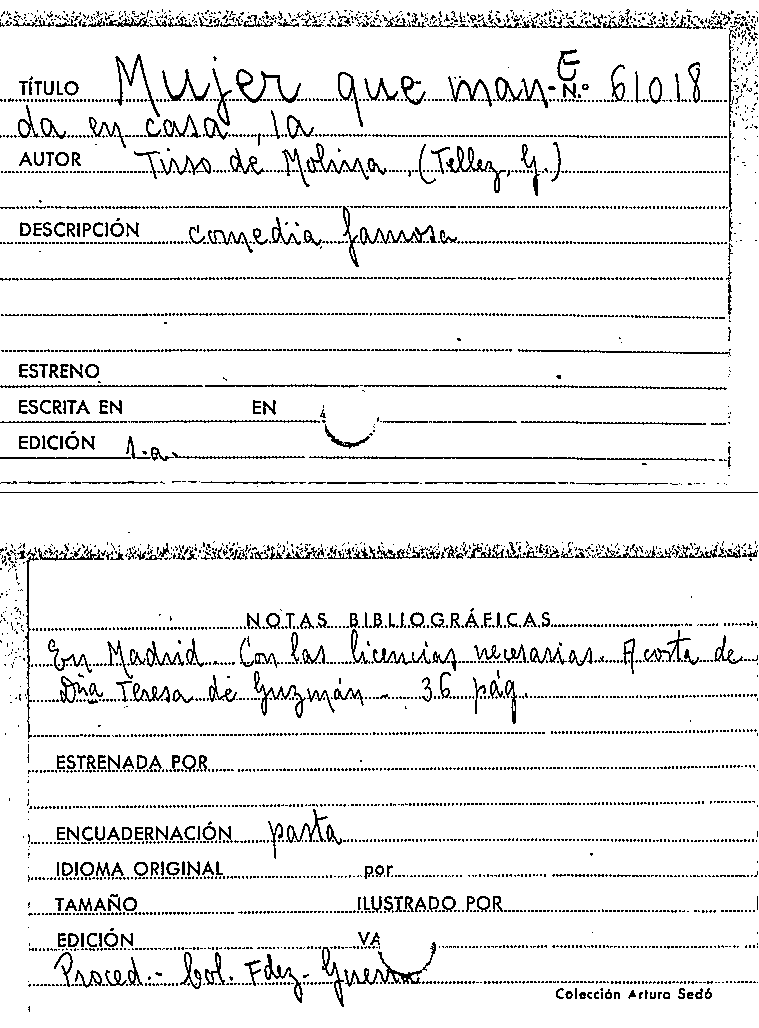 TÍTULO Mujer que man- E N.º 61018
da en casa, la
AUTOR Tirso de Molina, (Tellez, G.)
DESCRIPCIÓN comedia famosa
ESTRENO
ESCRITA EN EN
EDICIÓN s.a.
NOTAS BIBLIOGRÁFICAS
En Madrid. Con las licencias necesarias. A costa de
Dña Teresa de Guzmán - 36 pág.
ESTRENADA POR
ENCUADERNACIÓN pasta
IDIOMA ORIGINAL por
TAMAÑO ILUSTRADO POR
EDICIÓN VA
Proced.- Col. Fdez-Guerra
Colección Arturo Sedó